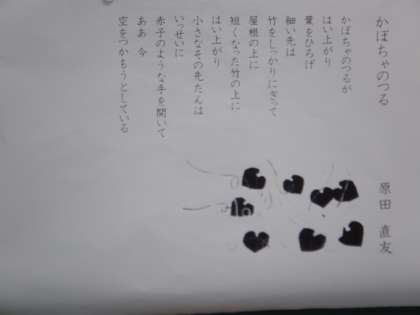 かぼちゃのつる
原田 直友
かぼちゃのつるが
はい上がり
はい上がり
葉をひろげ
葉をひろげ
細い先は
竹をしっかりにぎって
屋根の上に
短くなった竹の上に
はい上がり
小さなその先たんは
いっせいに
赤子のような手を開いて
ああ 今
空をつかもうとしている